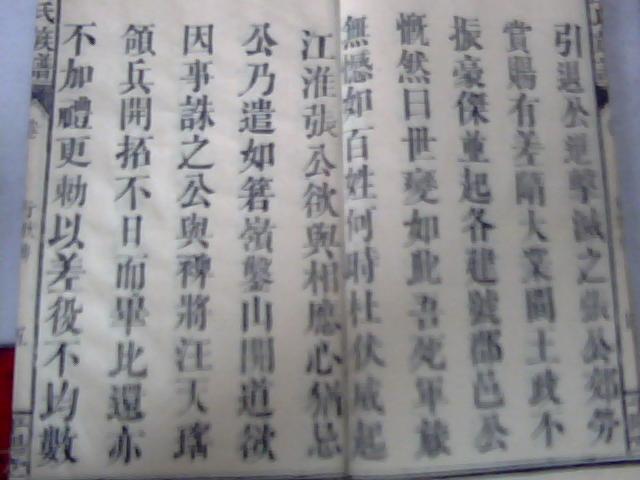 引退公逆擊滅之張公郊勞
賞賜有差隋大業閒主政不
振豪傑並起各建號郡邑公
慨然曰世變如此吾死軍旅
無憾如百姓何時杜伏威起
江淮張公欲與相應心猶忌
公乃遣如箬嶺鑿山開道欲
因事誅之公與裨將汪天瑤
領兵開拓不日而畢比還亦
不加禮更勑以差役不均數
氏族譜
五